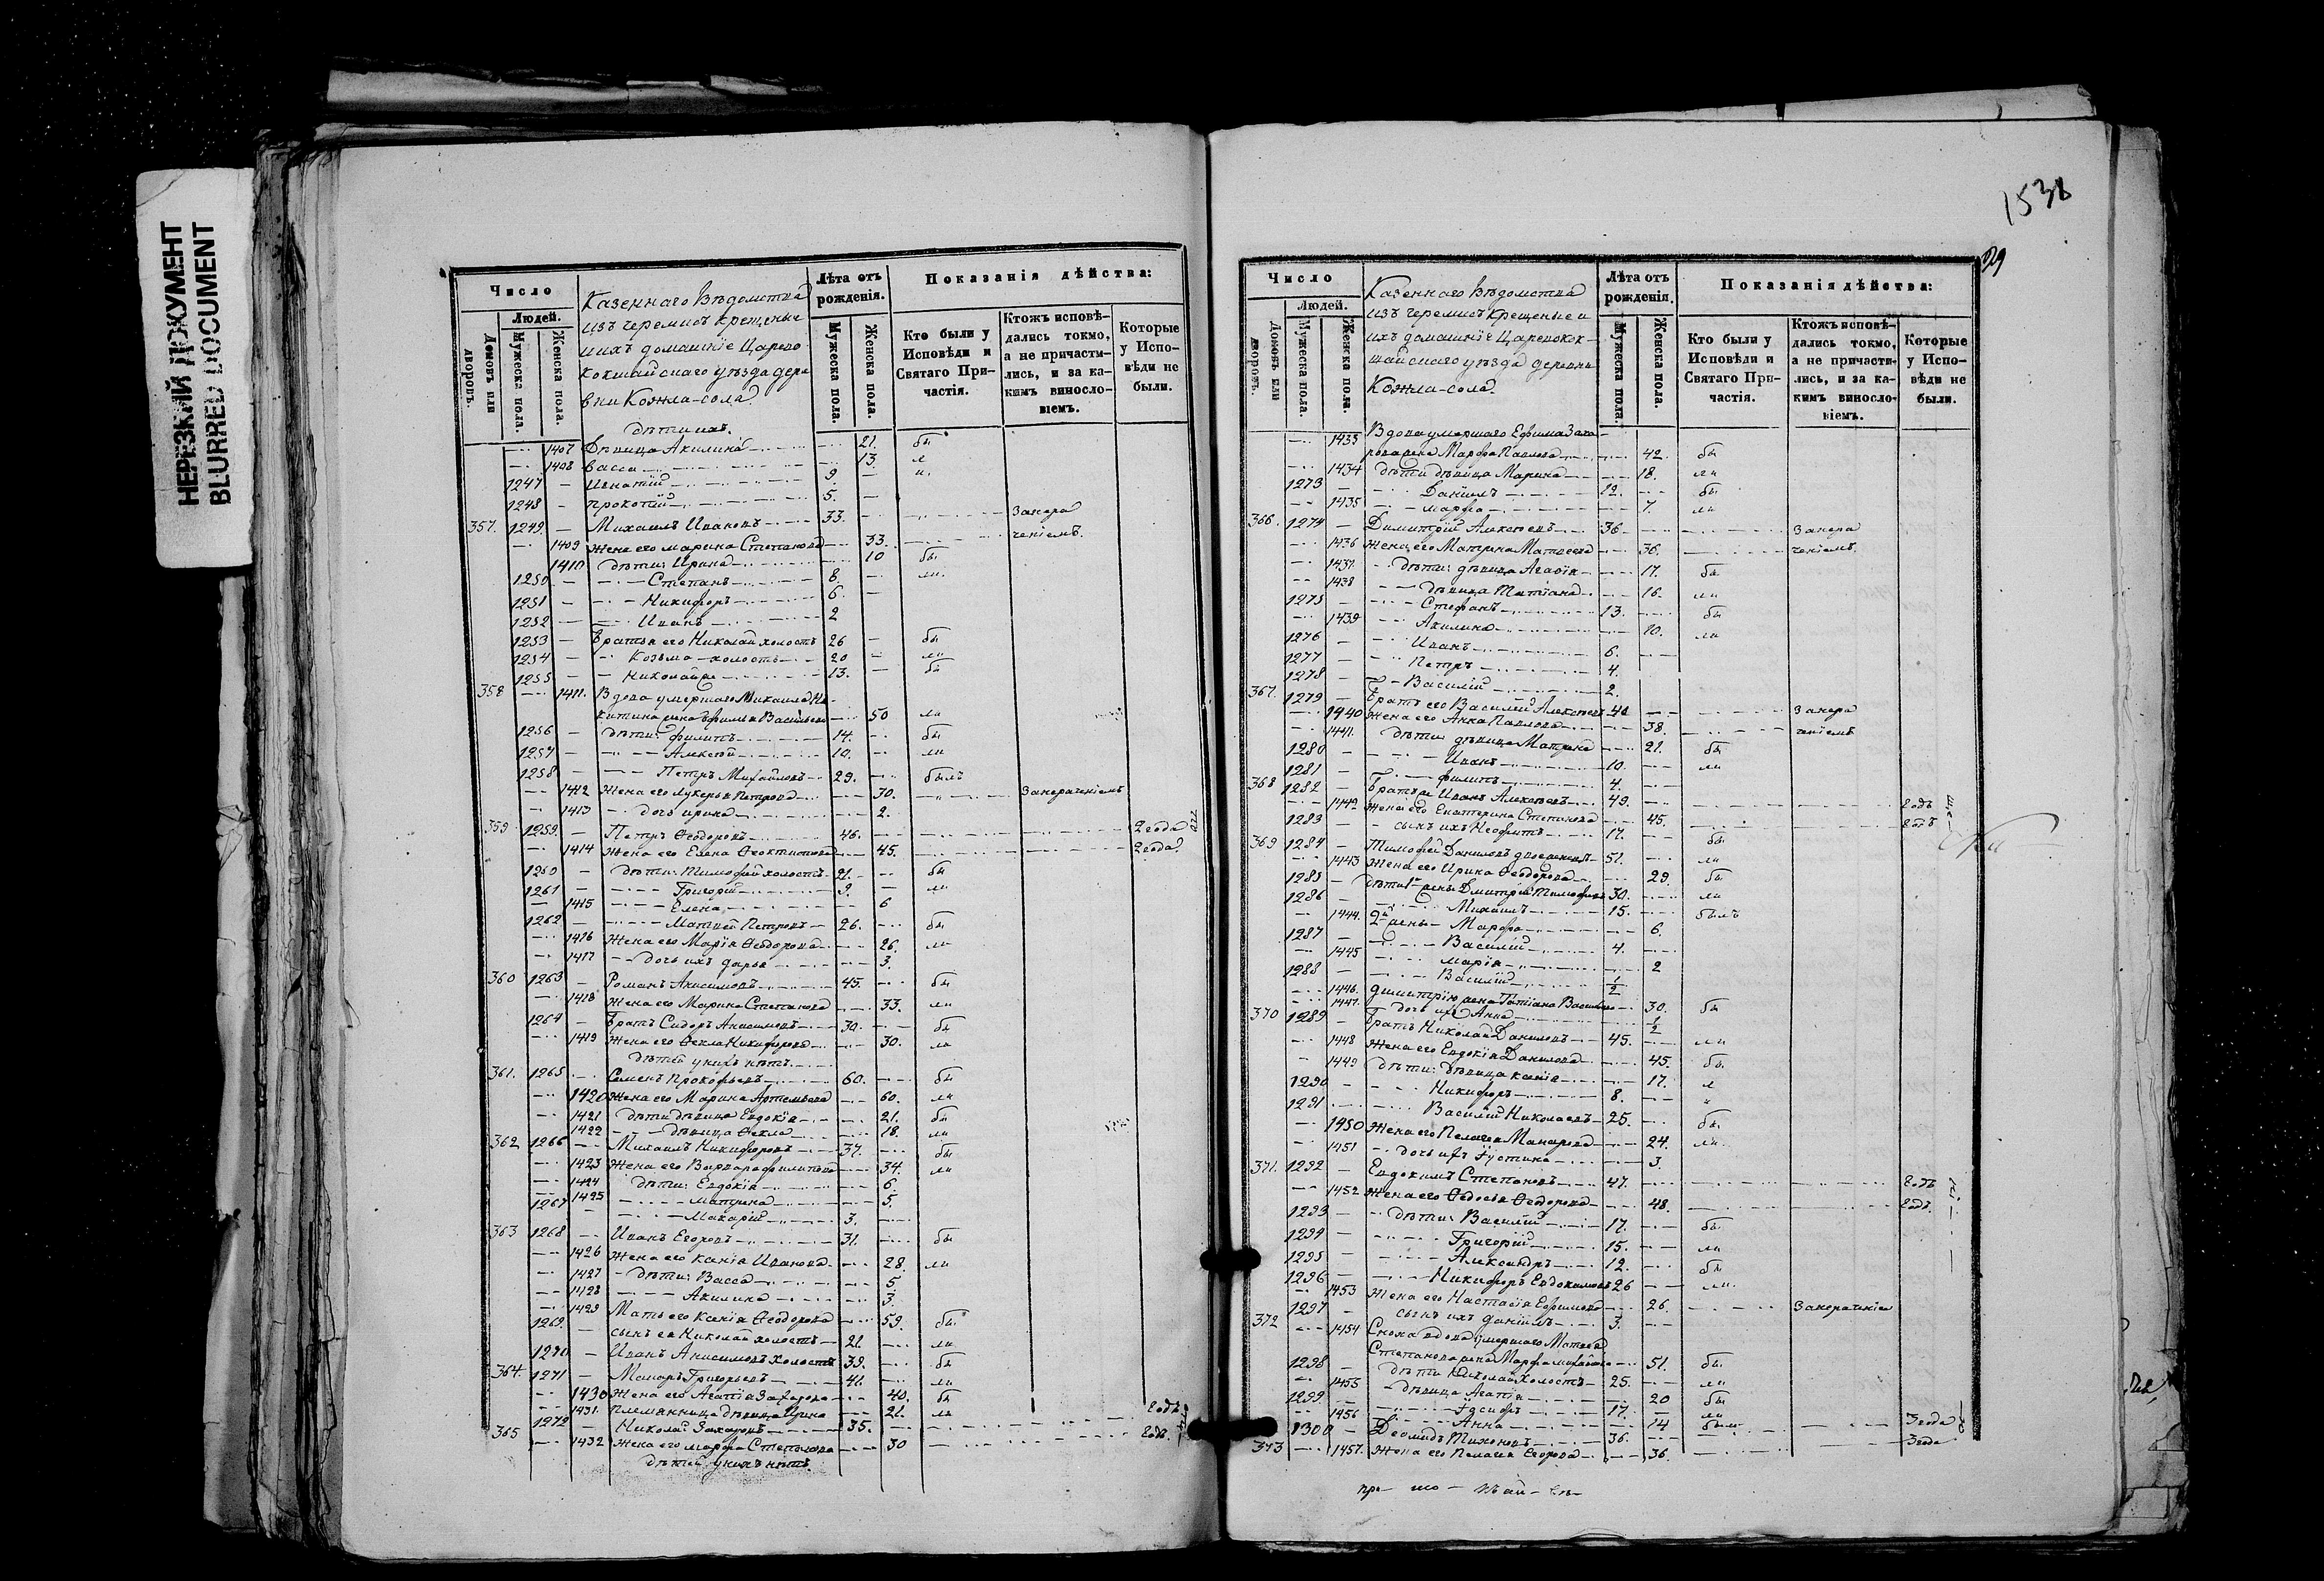 НЕРЕЗКИЙ ДОКУМЕНТ
BLURRED DOCUMENT
Число
Людей.
Домовъ или дворовъ.
Мужеска пола.
Женска пола.
Казеннаго Вѣдомства
изъ черемисъ крещеные
и ихъ домашніе Царево
кокшайскаго уѣзда дере
вни Кожла-сола.
Лѣта отъ рожденія.
Мужеска пола.
Женска пола.
Показанія дѣйства:
Кто были у Исповѣди и Святаго Причастія.
Ктожъ исповѣ-
дались токмо,
а не причасти-
лись, и за ка-
кимъ виносло-
віемъ.
Которые
у Испо-
вѣди не
были.
дѣти ихъ.
1407 Дѣвица Акилина 21. бы
1408 Васса 13. л
1247 Игнатій 9 и.
1248 Прокопій 5.
357. 1249. Михаилъ Ивановъ 33. Занера
1409 Жена его Марина Степанова 33. ченіемъ.
1410 дѣти: Ирина 10 бы
1250 Степанъ 8. ли.
1251 Никифоръ 6
1252 Иванъ 2
1253 Братья его Николай холостъ 26 бы
1254 Козьма холостъ 20 ли
1255 Николай 13. бы
358 1411. Вдова умершаго Михаила Ни
китина жена Ефимья Васильева 50 ли
1256 дѣти: Филипъ 14. бы
1257 Алексѣй 10. ли
1258 Петръ Михайловъ 29. былъ
1412 Жена его Лукерья Петрова 30. Занераченіемъ
1413 дочь Ирина 2.
359 1259. Петръ Ѳеодоровъ 46. 2 года
1414 Жена его Елена Ѳеоктистова 45. 2 года
1260 дѣти: Тимофей холостъ 21. бы
1261 Григорій 9. ли
1415 Елена 6
1262 Матвей Петровъ 26. бы
1416 Жена его Марія Ѳеодорова 26. ли
1417 дочь ихъ Дарья 3.
360 1263 Романъ Анисимовъ 45. бы
1418 Жена его Марина Степанова 33. ли
1264 Братъ Сидоръ Анисимовъ 30. бы
1419 Жена его Ѳекла Никифорова 30. ли
дѣтей у нихъ нѣтъ.
361. 1265 Семенъ Прокофьевъ 60. бы
1420 Жена его Марина Артемьева 60. ли
1421 дѣти дѣвица Евдокія 21. бы
1422 дѣвица Ѳекла 18. ли
362 1266 Михаилъ Никифоровъ 37. бы
1423 Жена его Варвара Филипова 34. ли
1424 дѣти: Евдокія 6.
1425 Матрена 5.
1267 Макарій 3.
363 1268 Иванъ Егоровъ 31. бы
1426 Жена его Ксенія Иванова 28. ли
1427 дѣти: Васса 5
1428 Акилина 3.
1429 Мать его Ксенія Ѳеодорова 59. бы
1269. сынъ ея Николай холостъ 21. ли
1270 Иванъ Анисимовъ холостъ 39. бы
364. 1271 Макаръ Григорьевъ 41. ли
1430 Жена его Агапія Захарова 40. бы
1431. Племянница дѣвица Ирина 21. ли
365 1272 Николай Захаровъ 35. Годъ
1432 Жена его Марфа Степанова 30 Годъ.
дѣтей у нихъ нѣтъ.
1538
Число
Людей.
Домовъ или дворовъ.
Мужеска пола.
Женска пола.
Казеннаго Вѣдомства
изъ черемисъ крещеные и
ихъ домашніе Царевокок
шайскаго уѣзда деревни
Кожла-сола.
Лѣта отъ рожденія.
Мужеска пола.
Женска пола.
Показанія дѣйства:
Кто были у Исповѣди и Святаго Причастія.
Ктожъ исповѣ-
дались токмо,
а не причасти-
лись, и за ка-
кимъ виносло-
віемъ.
Которые
у Испо-
вѣди не
были.
1433 Вдова умершаго Ефима Заха
рова жена Марфа Павлова 42. бы
1434 дѣти дѣвица Марина 18. ли
1273 Даніилъ 12. бы
1435 Марфа 7. ли
366. 1274 Димитрій Алексѣевъ 36 Занера
1436 Жена его Матрена Матвеева 36. ченіемъ.
1437. дѣти: дѣвица Агафія 17. бы
1438 дѣвица Татіана 16. ли
1275 Стефанъ 13. бы
1439 Акилина 10. ли
1276 Иванъ 6.
1277 Петръ 4.
1278 Василій 2.
367. 1279 Братъ его Василій Алексѣевъ 40 Занера
1440 Жена его Анна Павлова 38. ченіемъ
1441. дѣти: дѣвица Матрена 21. бы
1280 Иванъ 10. ли
1281 Филипъ 4.
368 1282 Братъ Иванъ Алексѣевъ 49. Годъ
1442 Жена его Екатерина Степанова 45. Годъ
1283 сынъ ихъ Неофитъ 17. бы
369 1284 Тимофей Даниловъ двоеженецъ 51. ли
1443 Жена его Ирина Ѳеодорова 29. бы
1285 дѣти 1й жены Дмитрій Тимофеевъ 30. ли
1286 Михаилъ 15. былъ
1444. 2й жены Марфа 6.
1287 Василій 4.
1445 Марія 2
1288 Василій ½
1446. Димитрію жена Татіана Васильева 30. бы
1447. дочь ихъ Анна ½
370 1289 Братъ Николай Даниловъ 45. ли
1448 Жена его Евдокія Данилова 45. бы
1449 дѣти: дѣвица Ксенія 17. л
1290 Никифоръ 8. и
1291 Василій Николаевъ 25. бы
1450 Жена его Пелагея Макарова 24. ли.
1451 дочь ихъ Іустина 3.
371. 1292 Евдокимъ Степановъ 47. Годъ
1452 Жена его Ѳедосья Ѳедорова 48. Годъ.
1293 дѣти: Василій 17. бы
1294 Григорій 15. ли
1295 Александръ 12. бы
1296 Никифоръ Евдокимовъ 26 ли.
1453 Жена его Настасія Ефимова 26. Занераченіем
1297 сынъ ихъ Даніилъ 3.
372 1454 Сноха вдова умершаго Матвея
Степанова жена Марфа 51. бы
1298 дѣти Николай холостъ 25. ли
1455 дѣвица Агапія 20 бы
1299 Іосифъ 17. ли
1456 Анна 14 были
1300 Діомидъ Тихоновъ 36. 3 года
373 1457. Жена его Пелагея Егорова 36. 3 года